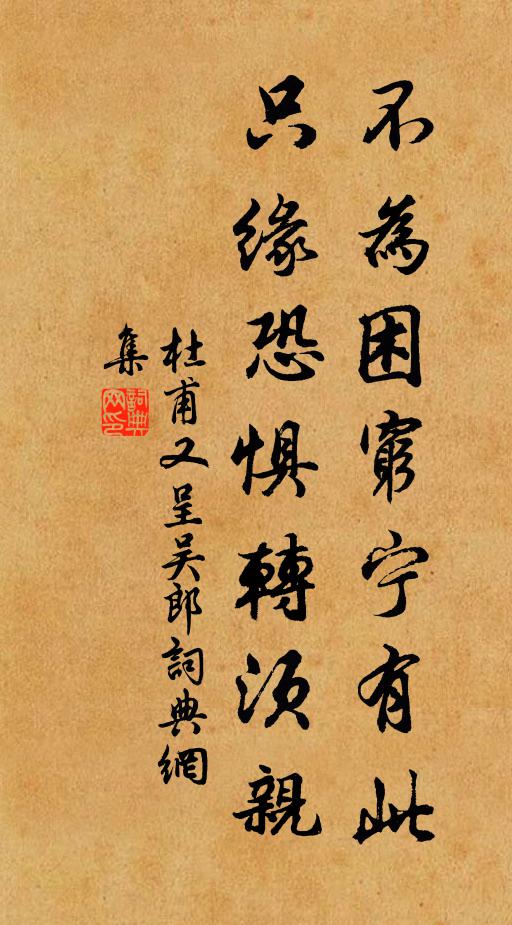 不為困窮宁有此
只緣恐惧轉須親
杜甫又呈吴郎詞典網
集
詞典网印